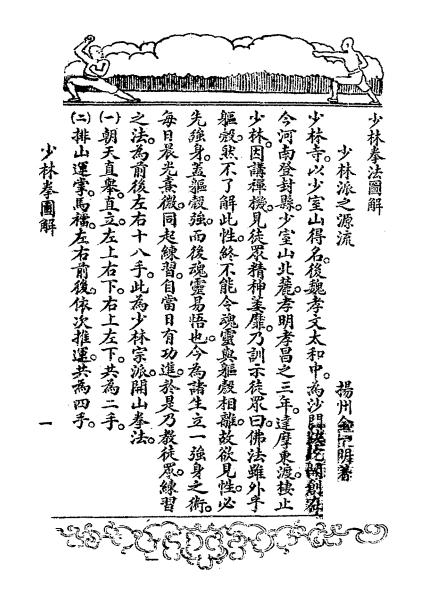 少林拳法圖解
少林派之源流 揚州金一明著
少林寺。以少室山得名。後魏孝文太和中。為沙門
今河南登封縣。少室山北麓。孝明孝昌之三年。達摩東渡。棲止
少林。因講禪機。見徒眾精神萎靡。乃訓示徒眾曰。佛法雖外乎
軀殼。然不了解此性。終不能令魂靈與軀殼相離。故欲見性。必
先強身。蓋軀殼強而後魂靈易悟也。今為諸生立一強身之術。
每日晨光熹微。同起練習。自當日有功進。於是乃教徒眾練習
之法。為前後左右十八手。此為少林宗派開山拳法。
(一)朝天直舉。直立。左上右下。右上左下。共為二手。
(二)排山運掌。馬檔。左右前後。依次推運。共為四手。
少林拳圖解 一